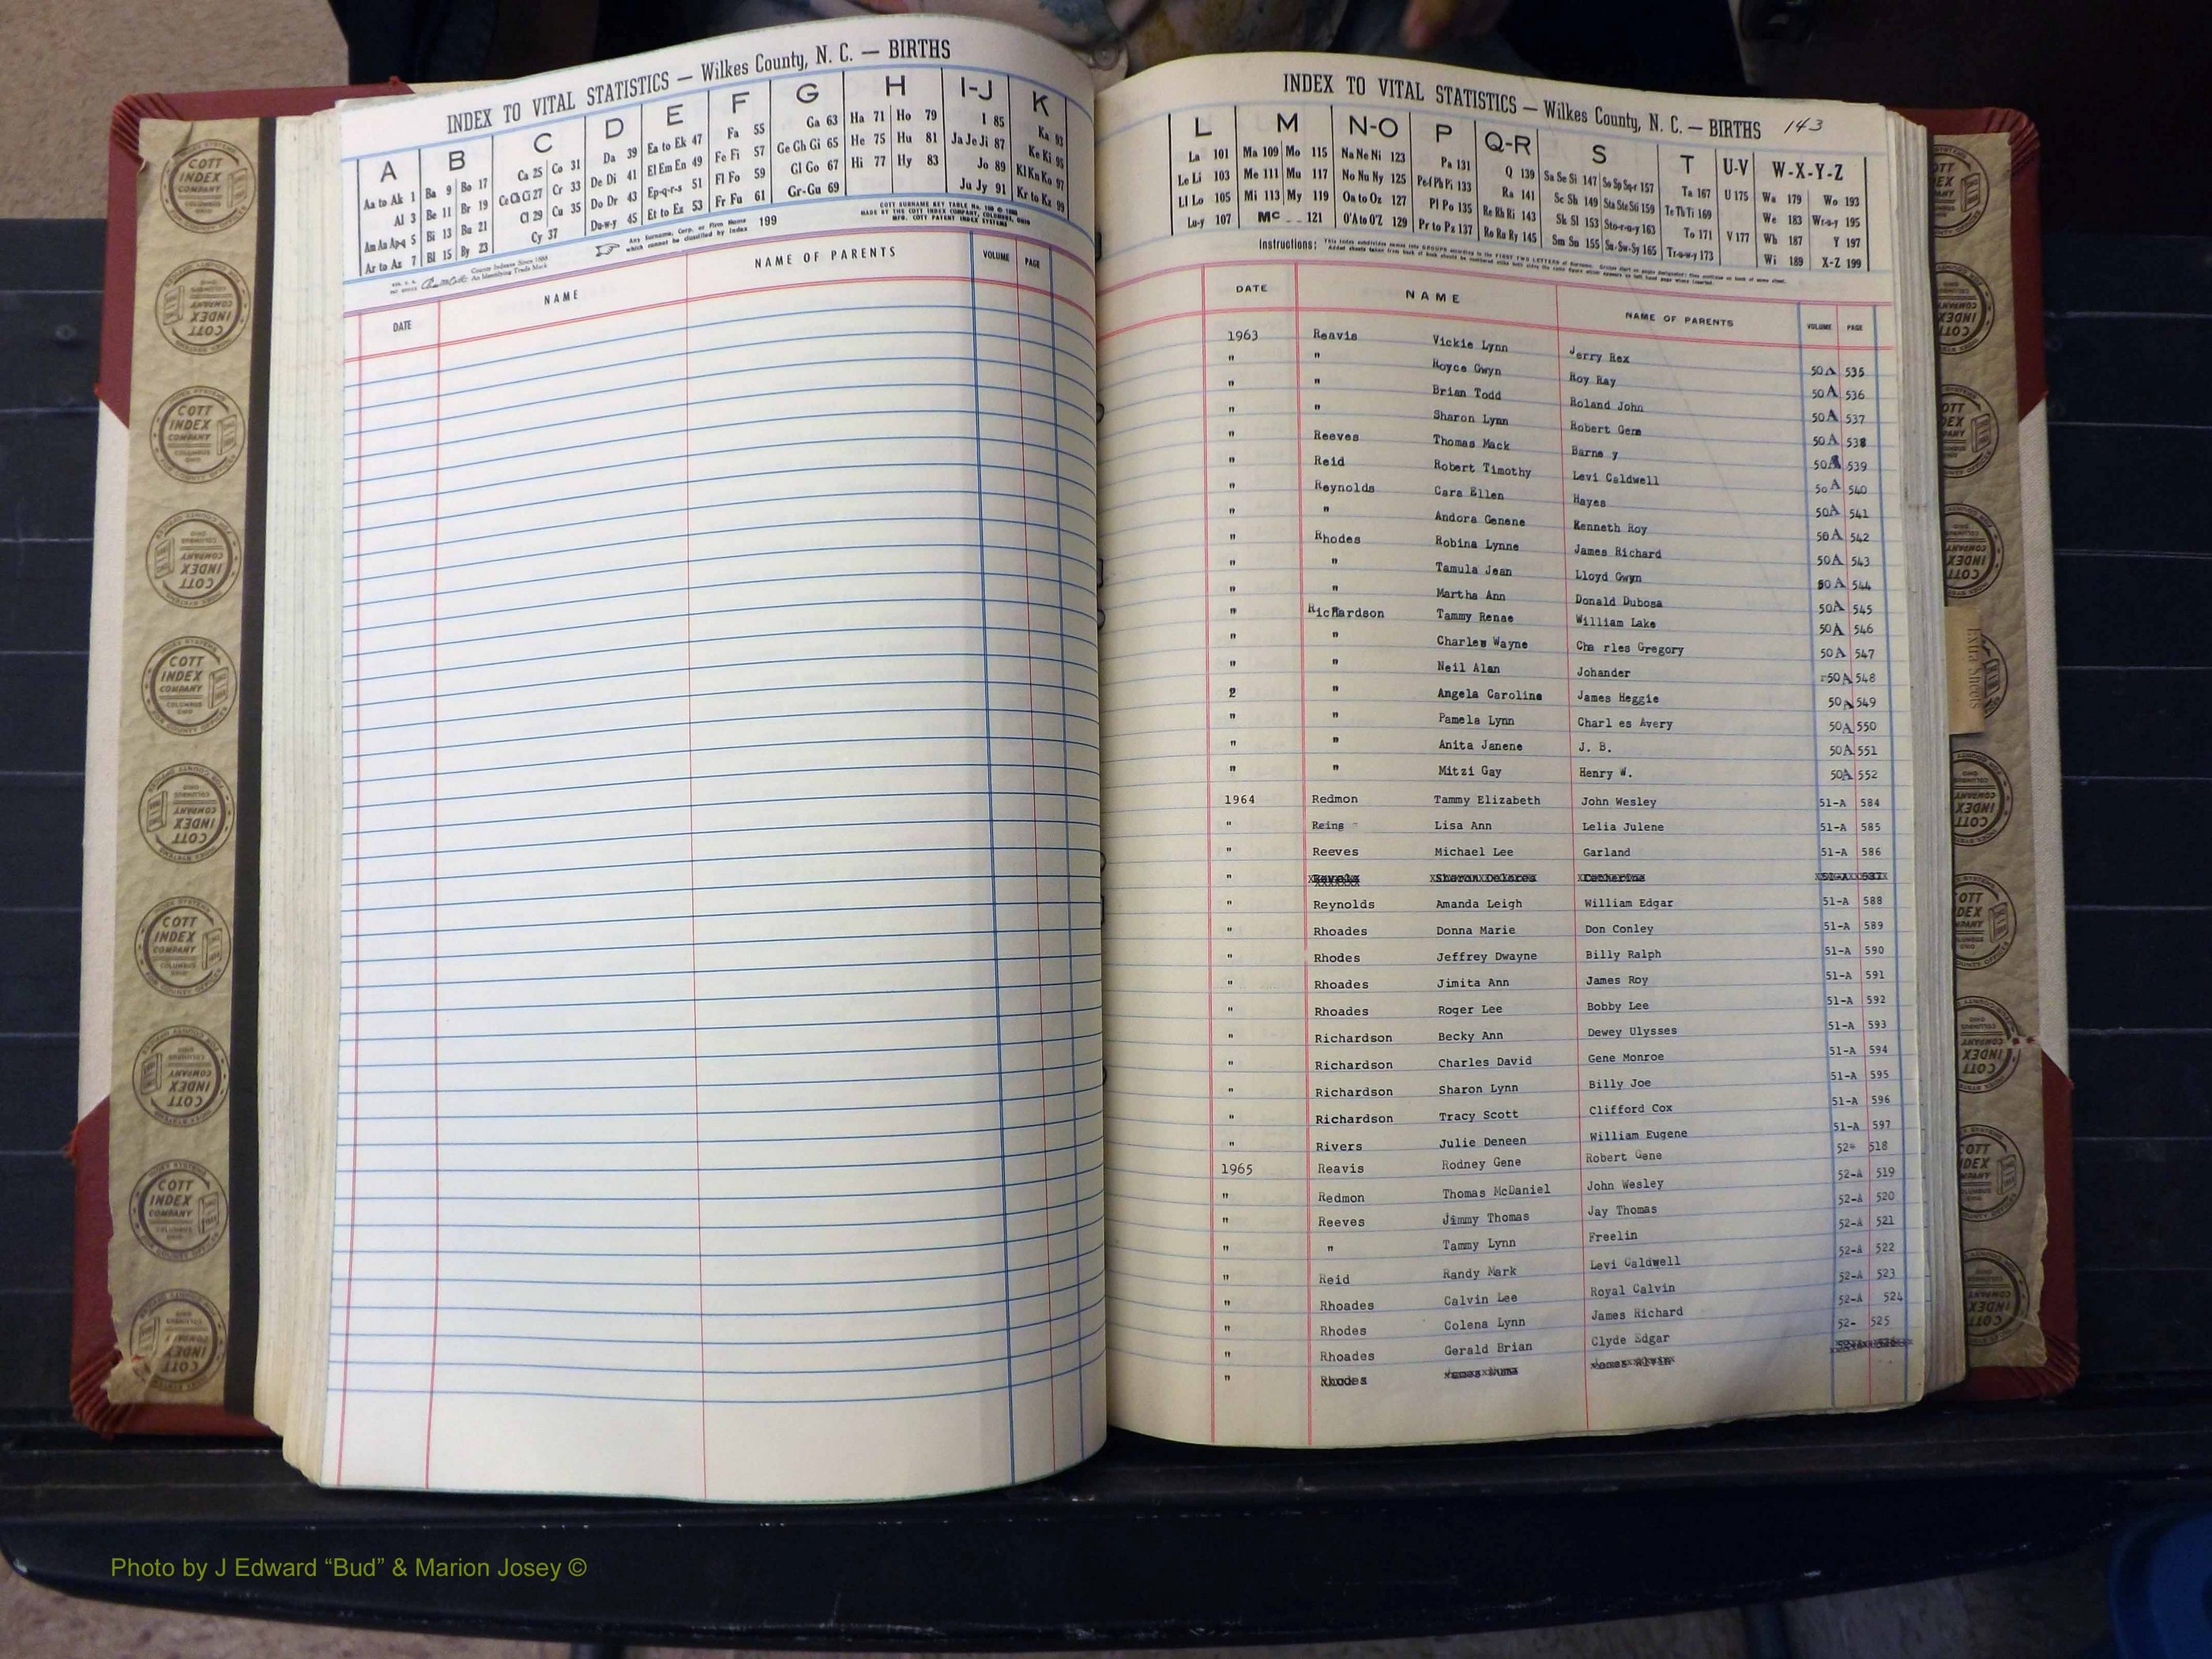 INDEX TO VITAL STATISTICS — Wilkes County, N. C. — BIRTHS
A B C D E F G H I-J K
Aa to Ak 1 Ba 9 Bo 17 Ca 25 Co 31 Da 39 Ea to Ek 47 Fa 55 Ga 63 Ha 71 Ho 79 I 85 Ka 93
Al 3 Be 11 Br 19 Ce Ch Ci 27 Cr 33 De Di 41 El Em En 49 Fe Fi 57 Ge Gh Gi 65 He 75 Hu 81 Ja Je Ji 87 Ke Ki 95
Am An Ap-q 5 Bi 13 Bu 21 Cl 29 Cu 35 Do Dr 43 Ep-q-r-s 51 Fl Fo 59 Gl Go 67 Hi 77 Hy 83 Jo 89 Kl Kn Ko 97
Ar to Az 7 Bl 15 By 23 Cy 37 Du-w-y 45 Et to Ez 53 Fr Fu 61 Gr-Gu 69 Ju Jy 91 Kr to Kz 99
Any Surname, Corp. or Firm Name which cannot be classified by Index 199
COTT SURNAME KEY TABLE
MADE BY THE COTT INDEX COMPANY, COLUMBUS, OHIO
MFG. COTT PATENT INDEX SYSTEMS
County Indexes Since 1888
An Identifying Trade Mark
DATE NAME NAME OF PARENTS VOLUME PAGE
INDEX TO VITAL STATISTICS — Wilkes County, N. C. — BIRTHS 143
L M N-O P Q-R S T U-V W-X-Y-Z
La 101 Ma 109 Mo 115 Na Ne Ni 123 Pa 131 Q 139 Sa Se Si 147 So Sp Sq-r 157 Ta 167 U 175 Wa 179 Wo 193
Le Li 103 Me 111 Mu 117 No Nu Ny 125 Pe-f Ph Pi 133 Ra 141 Sc Sh 149 Sta Ste Sti 159 Te Th Ti 169 We 183 Wr-u-y 195
Ll Lo 105 Mi 113 My 119 Oa to Oz 127 Pl Po 135 Re Rh Ri 143 Sk Sl 153 Sto-r-u-y 163 To 171 V 177 Wh 187 Y 197
Lu-y 107 Mc 121 O'A to O'Z 129 Pr to Pz 137 Ro Ru Ry 145 Sm Sn 155 Su-Sw-Sy 165 Tr-u-w-y 173 Wi 189 X-Z 199
Instructions:
DATE NAME NAME OF PARENTS VOLUME PAGE
1963 Reavis Vickie Lynn Jerry Rex 50A 535
" " Royce Gwyn Roy Ray 50A 536
" " Brian Todd Roland John 50A 537
" " Sharon Lynn Robert Gene 50A 538
" Reeves Thomas Mack Barne y 50A 539
" Reid Robert Timothy Levi Caldwell 50A 540
" Reynolds Cara Ellen Hayes 50A 541
" " Andora Genene Kenneth Roy 50A 542
" Rhodes Robina Lynne James Richard 50A 543
" " Tamula Jean Lloyd Gwyn 50A 544
" " Martha Ann Donald Dubosa 50A 545
" Richardson Tammy Renae William Lake 50A 546
" " Charles Wayne Cha rles Gregory 50A 547
" " Neil Alan Johander 50A 548
2 " Angela Caroline James Heggie 50A 549
" " Pamela Lynn Charl es Avery 50A 550
" " Anita Janene J. B. 50A 551
" " Mitzi Gay Henry W. 50A 552
1964 Redmon Tammy Elizabeth John Wesley 51-A 584
" Reins Lisa Ann Lelia Julene 51-A 585
" Reeves Michael Lee Garland 51-A 586
"
" Reynolds Amanda Leigh William Edgar 51-A 588
" Rhoades Donna Marie Don Conley 51-A 589
" Rhodes Jeffrey Dwayne Billy Ralph 51-A 590
" Rhoades Jimita Ann James Roy 51-A 591
" Rhoades Roger Lee Bobby Lee 51-A 592
" Richardson Becky Ann Dewey Ulysses 51-A 593
" Richardson Charles David Gene Monroe 51-A 594
" Richardson Sharon Lynn Billy Joe 51-A 595
" Richardson Tracy Scott Clifford Cox 51-A 596
" Rivers Julie Deneen William Eugene 51-A 597
1965 Reavis Rodney Gene Robert Gene 52- 518
" Redmon Thomas McDaniel John Wesley 52-A 519
" Reeves Jimmy Thomas Jay Thomas 52-A 520
" " Tammy Lynn Freelin 52-A 521
" Reid Randy Mark Levi Caldwell 52-A 522
" Rhoades Calvin Lee Royal Calvin 52-A 523
" Rhodes Colena Lynn James Richard 52-A 524
" Rhoades Gerald Brian Clyde Edgar 52- 525
" Rhodes
Extra Sheets
COTT INDEX COMPANY COLUMBUS OHIO
Photo by J Edward “Bud” & Marion Josey ©